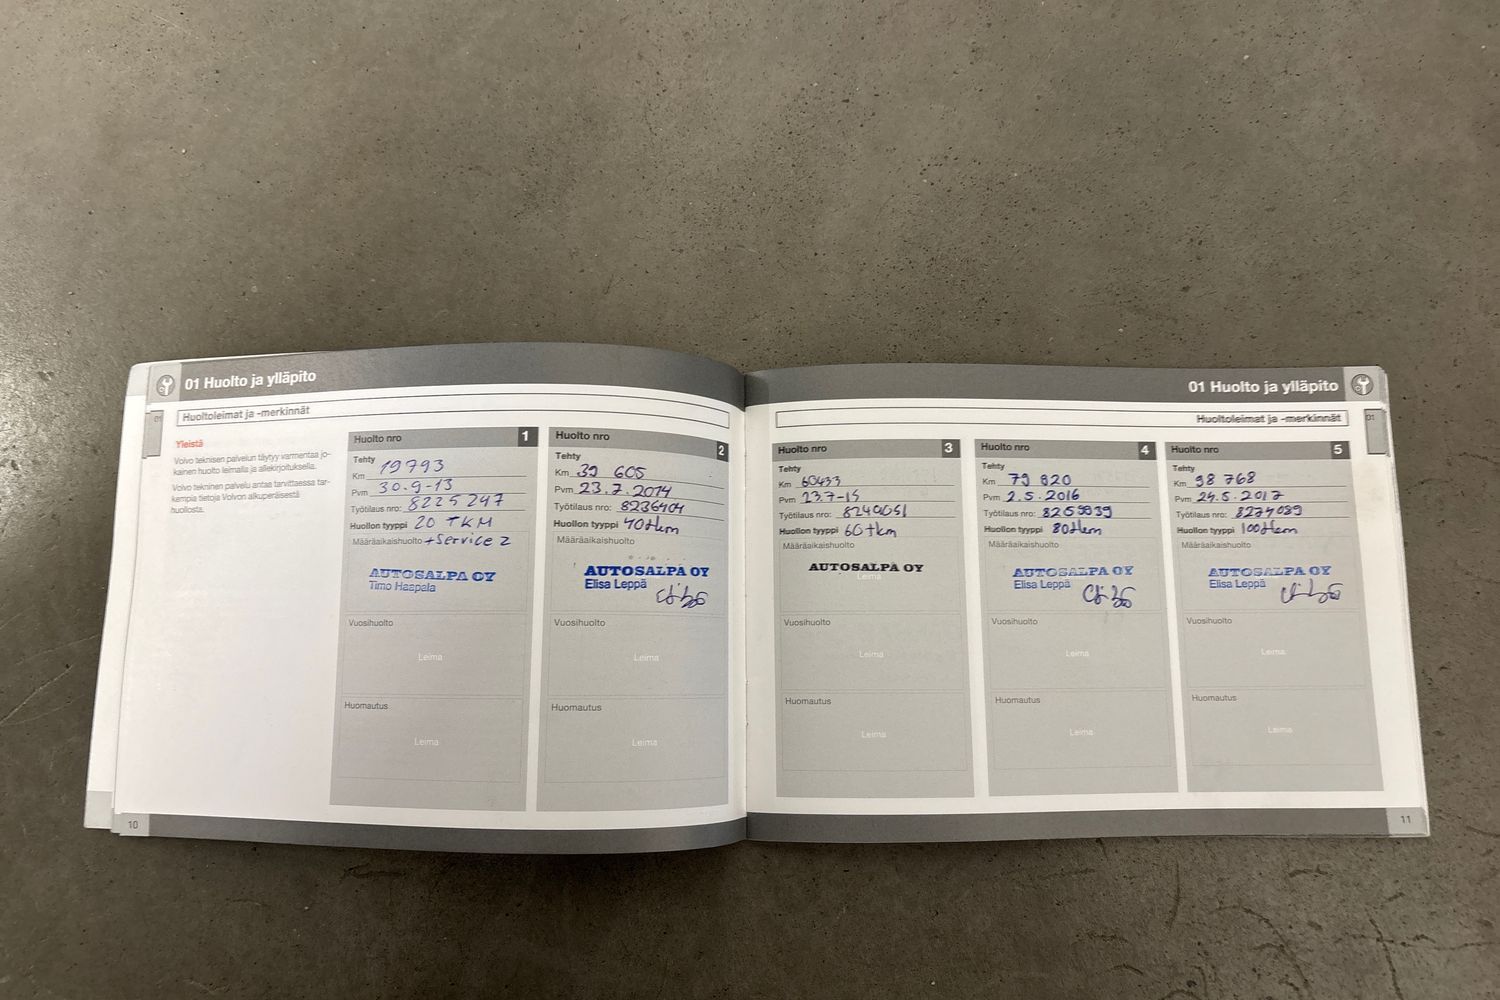 01 Huolto ja ylläpito
01
Huoltoleimat ja -merkinnät
Yleistä
Volvo teknisen palvelun täytyy varmentaa jo-
kainen huolto leimalla ja allekirjoituksella.
Volvo tekninen palvelu antaa tarvittaessa tar-
kempia tietoja Volvon alkuperäisestä
huollosta.
Huolto nro 1
Tehty
Km 19793
Pvm 30.9-13
Työtilaus nro: 8225247
Huollon tyyppi 20 TKM
Määräaikaishuolto +Service 2
AUTOSALPA OY
Timo Haapala
Vuosihuolto
Leima
Huomautus
Leima
Huolto nro 2
Tehty
Km 39 605
Pvm 23.7.2014
Työtilaus nro: 8236404
Huollon tyyppi 40tkm
Määräaikaishuolto
AUTOSALPA OY
Elisa Leppä
Vuosihuolto
Leima
Huomautus
Leima
10
01 Huolto ja ylläpito
Huoltoleimat ja -merkinnät
01
Huolto nro 3
Tehty
Km 60433
Pvm 23.7-15
Työtilaus nro: 8240051
Huollon tyyppi 60tkm
Määräaikaishuolto
AUTOSALPA OY
Leima
Vuosihuolto
Leima
Huomautus
Leima
Huolto nro 4
Tehty
Km 79 820
Pvm 2.5.2016
Työtilaus nro: 8259039
Huollon tyyppi 80tkm
Määräaikaishuolto
AUTOSALPA OY
Elisa Leppä
Vuosihuolto
Leima
Huomautus
Leima
Huolto nro 5
Tehty
Km 98 768
Pvm 24.5.2017
Työtilaus nro: 8274089
Huollon tyyppi 100tkm
Määräaikaishuolto
AUTOSALPA OY
Elisa Leppä
Vuosihuolto
Leima
Huomautus
Leima
11